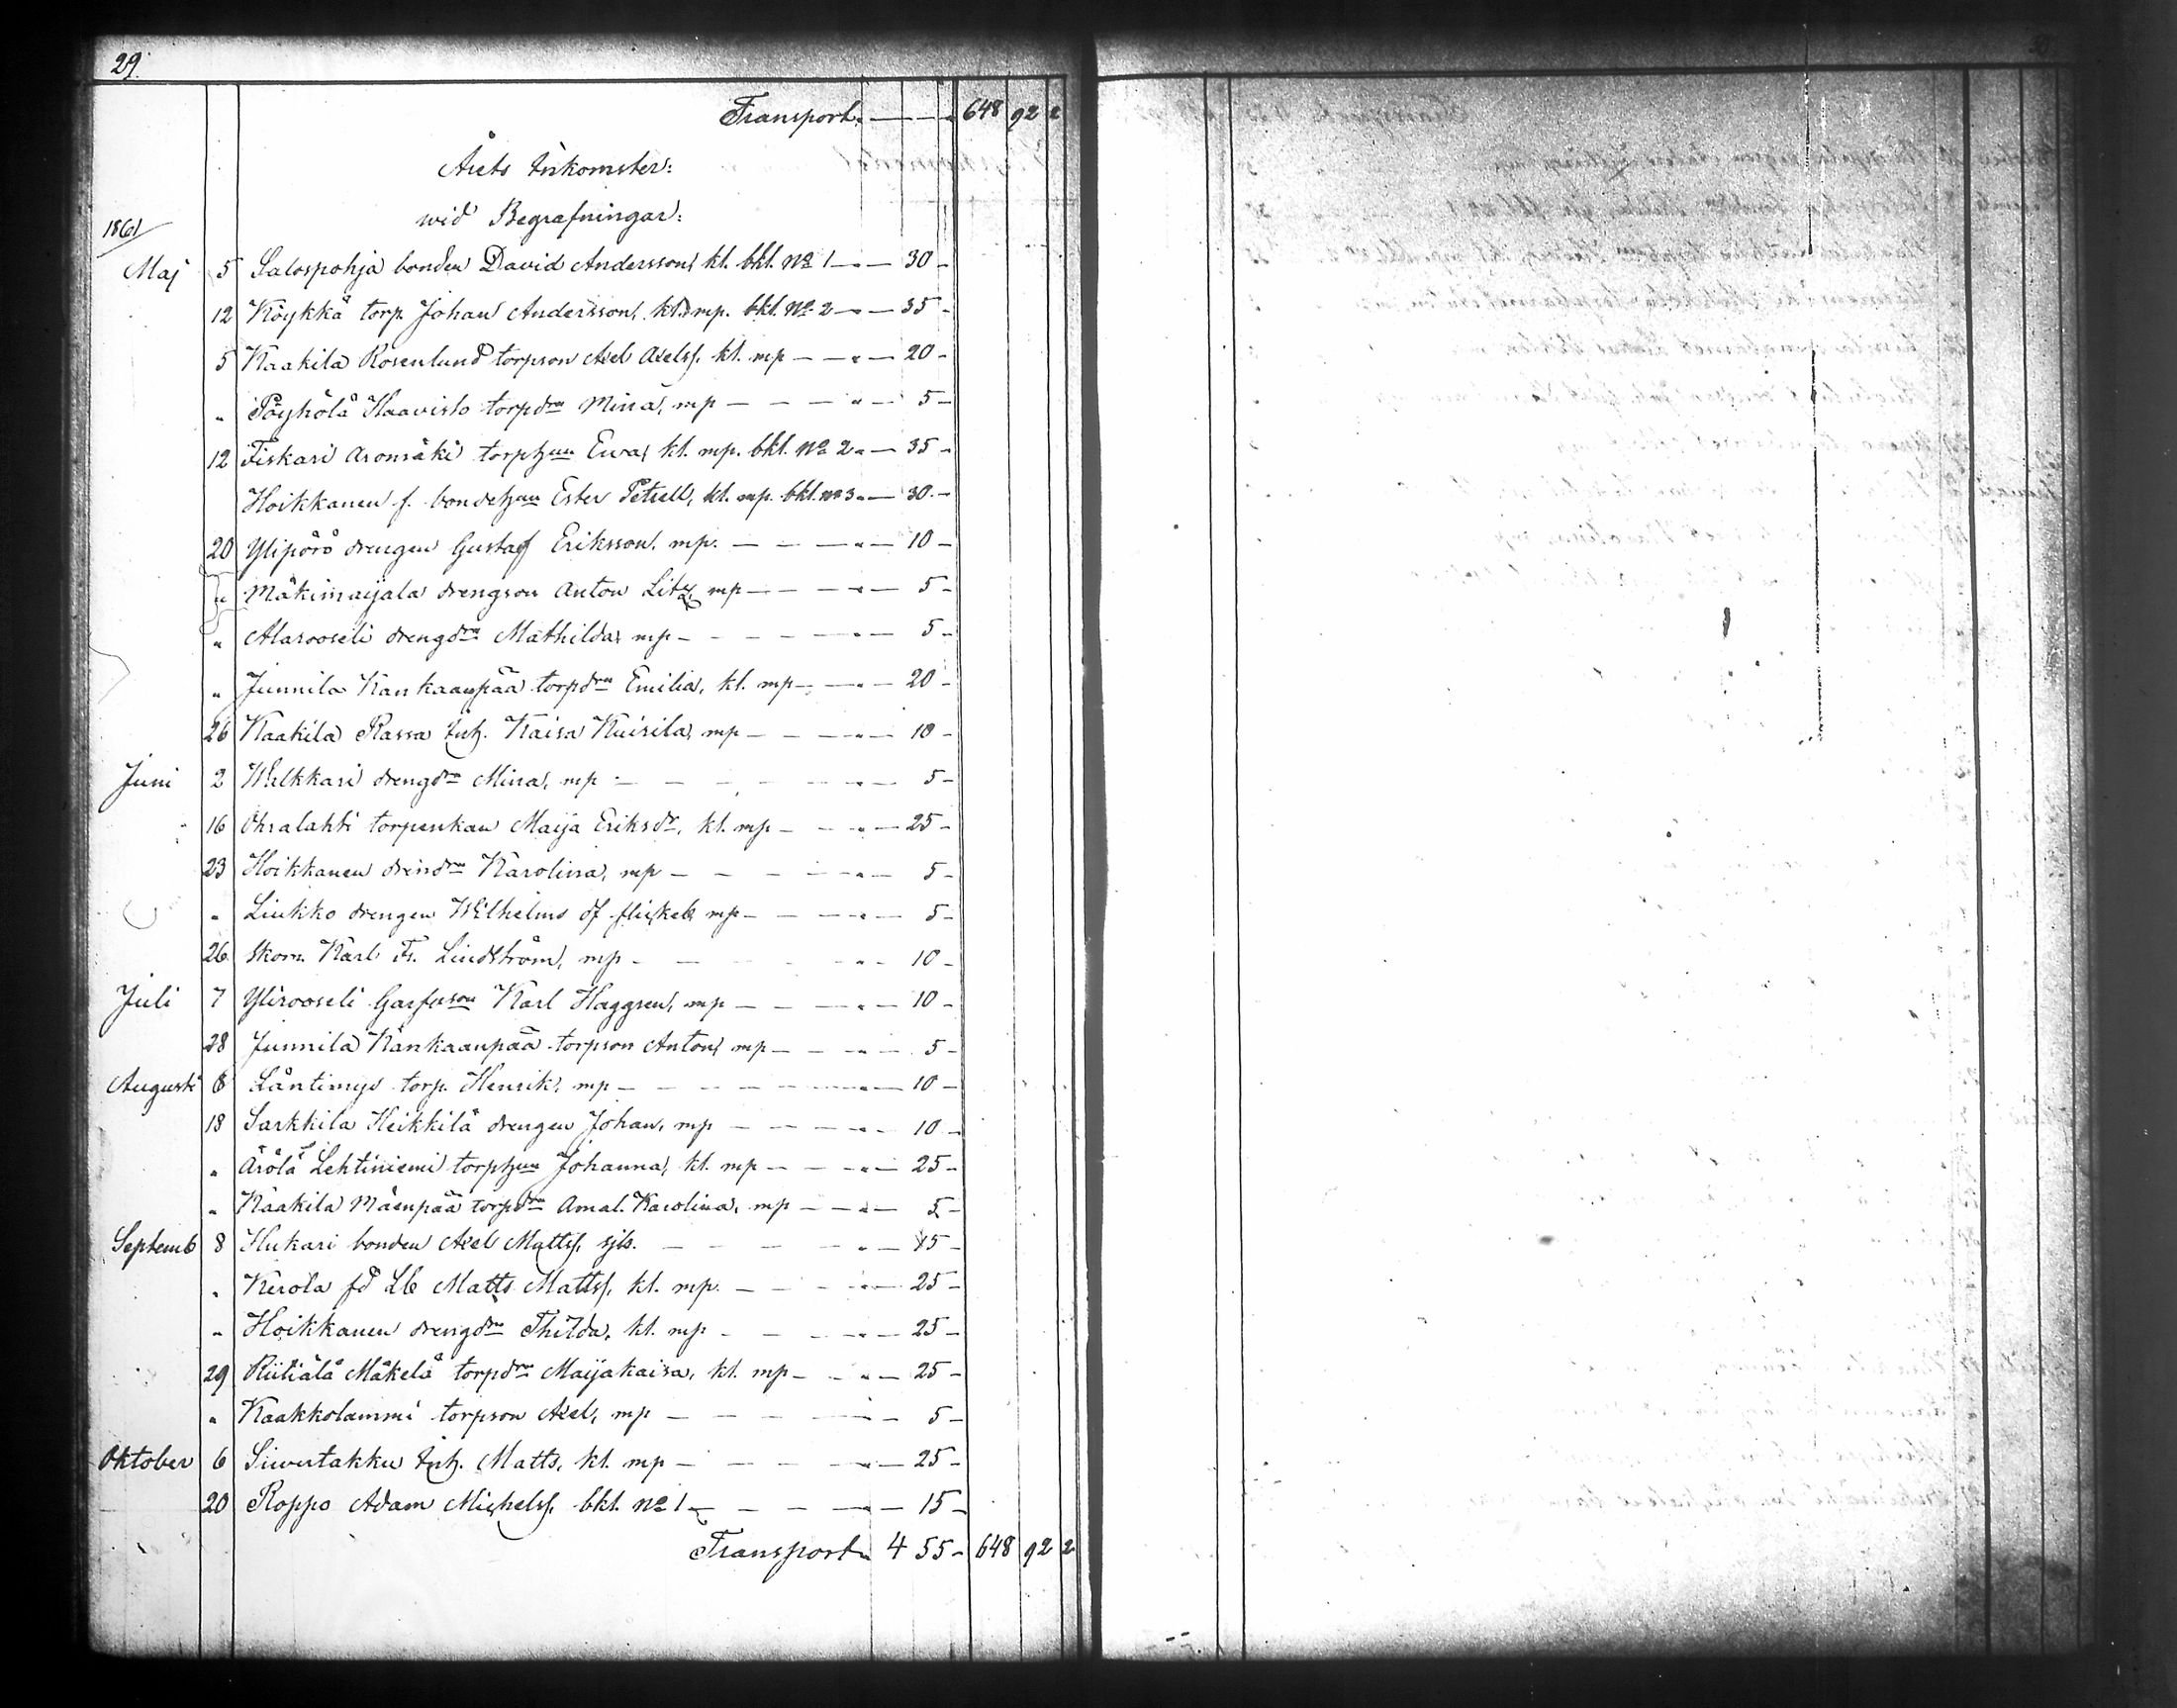 29.
Transport. — — " 648 92 2
Årets Inkomster:
wid Begrafningar:
1861/
Maj 5 Salospohja bonden David Andersson, kl. bkl. No 1 — " — 30 —
12 Köykkä torp. Johan Andersson, kl. mp. bkl. No 2 — " — 35 —
5 Kaakila Rosenlund torpson Axel Axelss. kl. mp — — " — 20 —
" Pöyhölä Haavisto torpdrn Mina, mp — — — " — 5 —
12 Fiskari Aromäki torphun Ewa, kl. mp. bkl. No 2 " — 35 —
Hoikkanen f. bondehun Ester Petrell, kl. mp. bkl. No 3 " — 30 —
20 Ylipörö drengen Gustaf Eriksson, mp. — — — " — 10 —
" Mäkimaijala drengson Anton Litz, mp — — — " — 5 —
" Alarooseli drengdrn Mathilda, mp — — — — " — 5 —
" Junnila Kankaanpää torpdrn Emilia, kl. mp — — " — 20 —
26 Kaakila Rassa Inh. Kaisa Kuisila, mp — — — " — 10 —
Juni 2 Walkkari drengdrn Mina, mp — — — — — " — 5 —
16 Ohralahti torpenkan Maija Eriksdr, kl. mp — — " — 25 —
23 Hoikkanen drendrn Karolina, mp — — — — " — 5 —
" Liukko drengen Wilhelms df flickeb. mp — — — " — 5 —
26 Skom. Karl Fr. Lindström, mp — — — — " — 10 —
Juli 7 Ylirooseli Garfveson Karl Haggren, mp — — — " — 10 —
28 Junnila Kankaanpää torpson Anton, mp — — — " — 5 —
Augusti 6 Läntimys torp. Henrik, mp — — — — — " — 10 —
18 Sarkkila Heikkilä drengen Johan, mp — — — " — 10 —
" Ärölä Lehtiniemi torphun Johanna, kl. mp — — " — 25 —
" Kaakila Mäenpää torpdrn Amal. Karolina, mp — — " — 5 —
Septemb 8 Hukari bonden Axel Mattss. sjb. — — — — " — 15 —
" Kerola fd Lb Matts Mattss. kl. mp. — — — " — 25 —
" Hoikkanen drengdrn Thilda, kl. mp — — — " — 25 —
29 Riitiälä Mäkelä torpdrn Maijakaisa, kl. mp — — " — 25 —
" Kaakkolammi torpson Axel, mp — — — — " — 5 —
Oktober 6 Siwertakku Inh. Matts, kl. mp — — — — " — 25 —
20 Roppo Adam Michelss. bkl. No 1 — — — — " — 15 —
Transport " 4 55 — 648 92 2